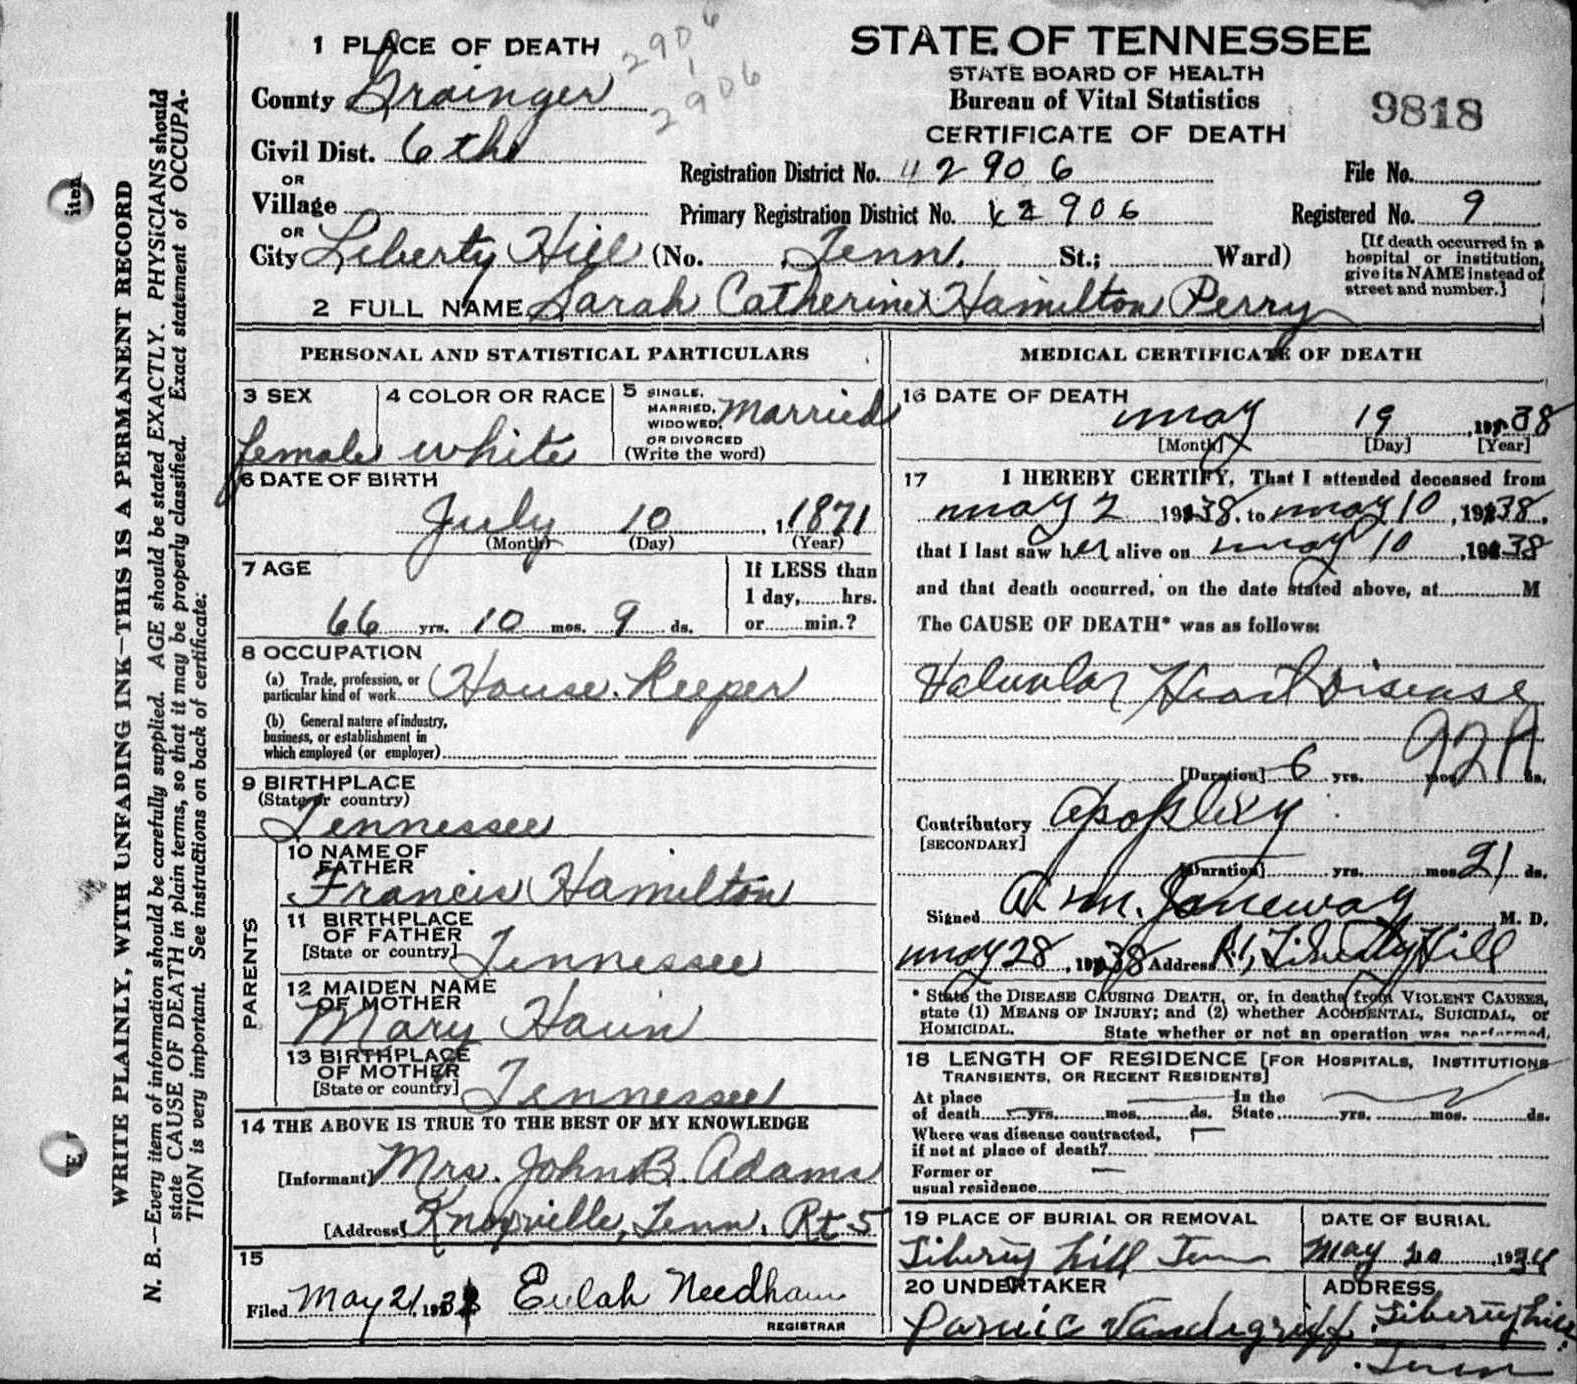 1 PLACE OF DEATH
2906
2906
County Grainger
Civil Dist. 6th
OR
Village
OR
City Liberty Hill (No. , Tenn. St.; Ward)
STATE OF TENNESSEE
STATE BOARD OF HEALTH
Bureau of Vital Statistics
CERTIFICATE OF DEATH
9818
Registration District No. 42906
File No.
Primary Registration District No. 42906
Registered No. 9
[If death occurred in a
hospital or institution,
give its NAME instead of
street and number.]
2 FULL NAME Sarah Catherine Hamilton Perry
PERSONAL AND STATISTICAL PARTICULARS
3 SEX
female
4 COLOR OR RACE
white
5 SINGLE,
MARRIED,
WIDOWED,
OR DIVORCED
(Write the word)
Married
6 DATE OF BIRTH
July 10 , 1871
(Month) (Day) (Year)
7 AGE
66 yrs. 10 mos. 9 ds.
If LESS than
1 day, hrs.
or min.?
8 OCCUPATION
(a) Trade, profession, or
particular kind of work House Keeper
(b) General nature of industry,
business, or establishment in
which employed (or employer)
9 BIRTHPLACE
(State or country)
Tennessee
PARENTS
10 NAME OF
FATHER
Francis Hamilton
11 BIRTHPLACE
OF FATHER
[State or country] Tennessee
12 MAIDEN NAME
OF MOTHER
Mary Haun
13 BIRTHPLACE
OF MOTHER
[State or country] Tennessee
14 THE ABOVE IS TRUE TO THE BEST OF MY KNOWLEDGE
[Informant] Mrs. John B. Adams
[Address] Knoxville, Tenn. Rt 5
15
Filed May 21, 1938 Eulah Needham
REGISTRAR
MEDICAL CERTIFICATE OF DEATH
16 DATE OF DEATH
may 19 , 1938
[Month] [Day] [Year]
17 I HEREBY CERTIFY, That I attended deceased from
may 2 1938, to may 10, 1938,
that I last saw her alive on may 10, 1938
and that death occurred, on the date stated above, at M
The CAUSE OF DEATH* was as follows:
Valvular Heart Disease
92A
[Duration] 6 yrs. mos. ds.
Contributory Apoplexy
[SECONDARY]
[Duration] yrs. mos. 21 ds.
Signed Janeway M. D.
may 28, 1938 Address R1, Liberty Hill
* State the DISEASE CAUSING DEATH, or, in deaths from VIOLENT CAUSES,
state (1) MEANS OF INJURY; and (2) whether ACCIDENTAL, SUICIDAL, or
HOMICIDAL. State whether or not an operation was performed.
18 LENGTH OF RESIDENCE [FOR HOSPITALS, INSTITUTIONS
TRANSIENTS, OR RECENT RESIDENTS]
At place In the
of death yrs. mos. ds. State yrs. mos. ds.
Where was disease contracted,
if not at place of death?
Former or
usual residence
19 PLACE OF BURIAL OR REMOVAL
Liberty hill Tenn
DATE OF BURIAL
May 20, 1934
20 UNDERTAKER
Vandegriff
ADDRESS
Liberty hill
Tenn
WRITE PLAINLY, WITH UNFADING INK—THIS IS A PERMANENT RECORD
N. B.—Every item of information should be carefully supplied. AGE should be stated EXACTLY. PHYSICIANS should
state CAUSE OF DEATH in plain terms, so that it may be properly classified. Exact statement of OCCUPA-
TION is very important. See instructions on back of certificate.